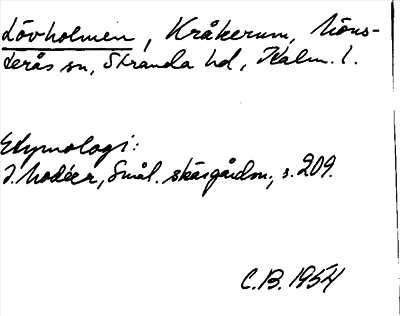 Lövholmen, Kråkerum, Möns-
terås sn, Stranda hd, Kalm. l.
Etymologi:
I. Modéer, Smål. skärgårdsn., s. 209.
C.B. 1954